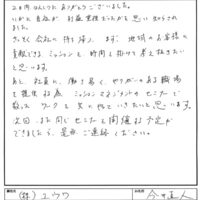 2日間ありがとうございました。
いかに自社が
と思い知らされ
ました。
きちんと会社に持ち帰り、まず、地域のお客様に
貢献できるミッションを、時間を掛けて考え抜きたい
と思います。
あと、社員に、働き易く、やりがいのある職場
を提供する為 ミッションマネジメントのセミナーで
教わったワークを
と思います。
次回、また同じセミナーを開催する予定が
できましたら、是非、ご連絡ください。
(株)ユウワ
今井直人